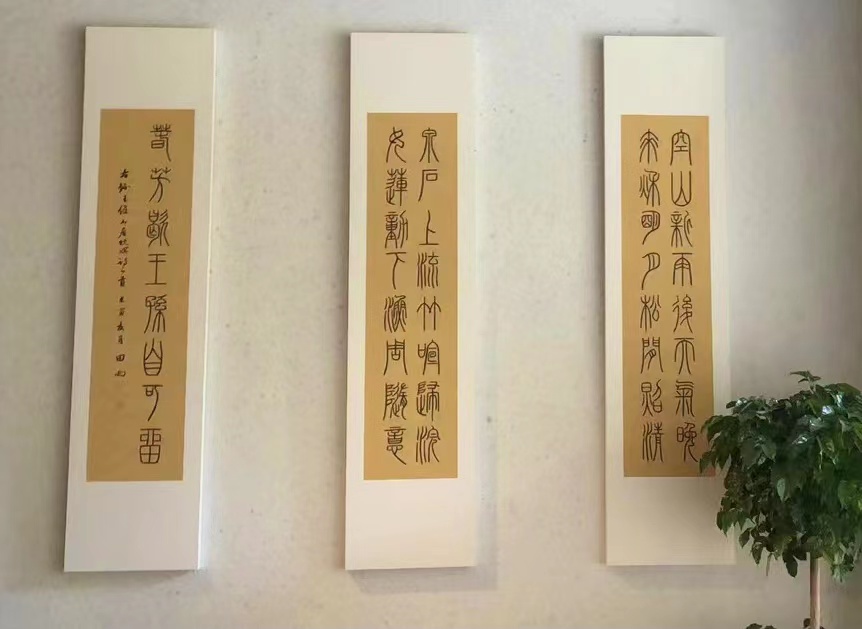 空山新雨後天氣晚
來秋明月松間照清
泉石上流竹喧歸浣
女蓮動下漁舟隨意
春芳歇王孫自可留
右錄王維山居秋暝詩一首